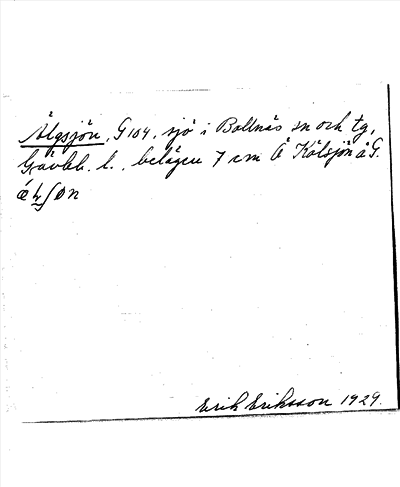 Älgsjön, G 104, sjö i Bollnäs sn och tg,
Gävleb. l., belägen 7 cm Ö Kälsjön å G.
Erik Eriksson 1929.